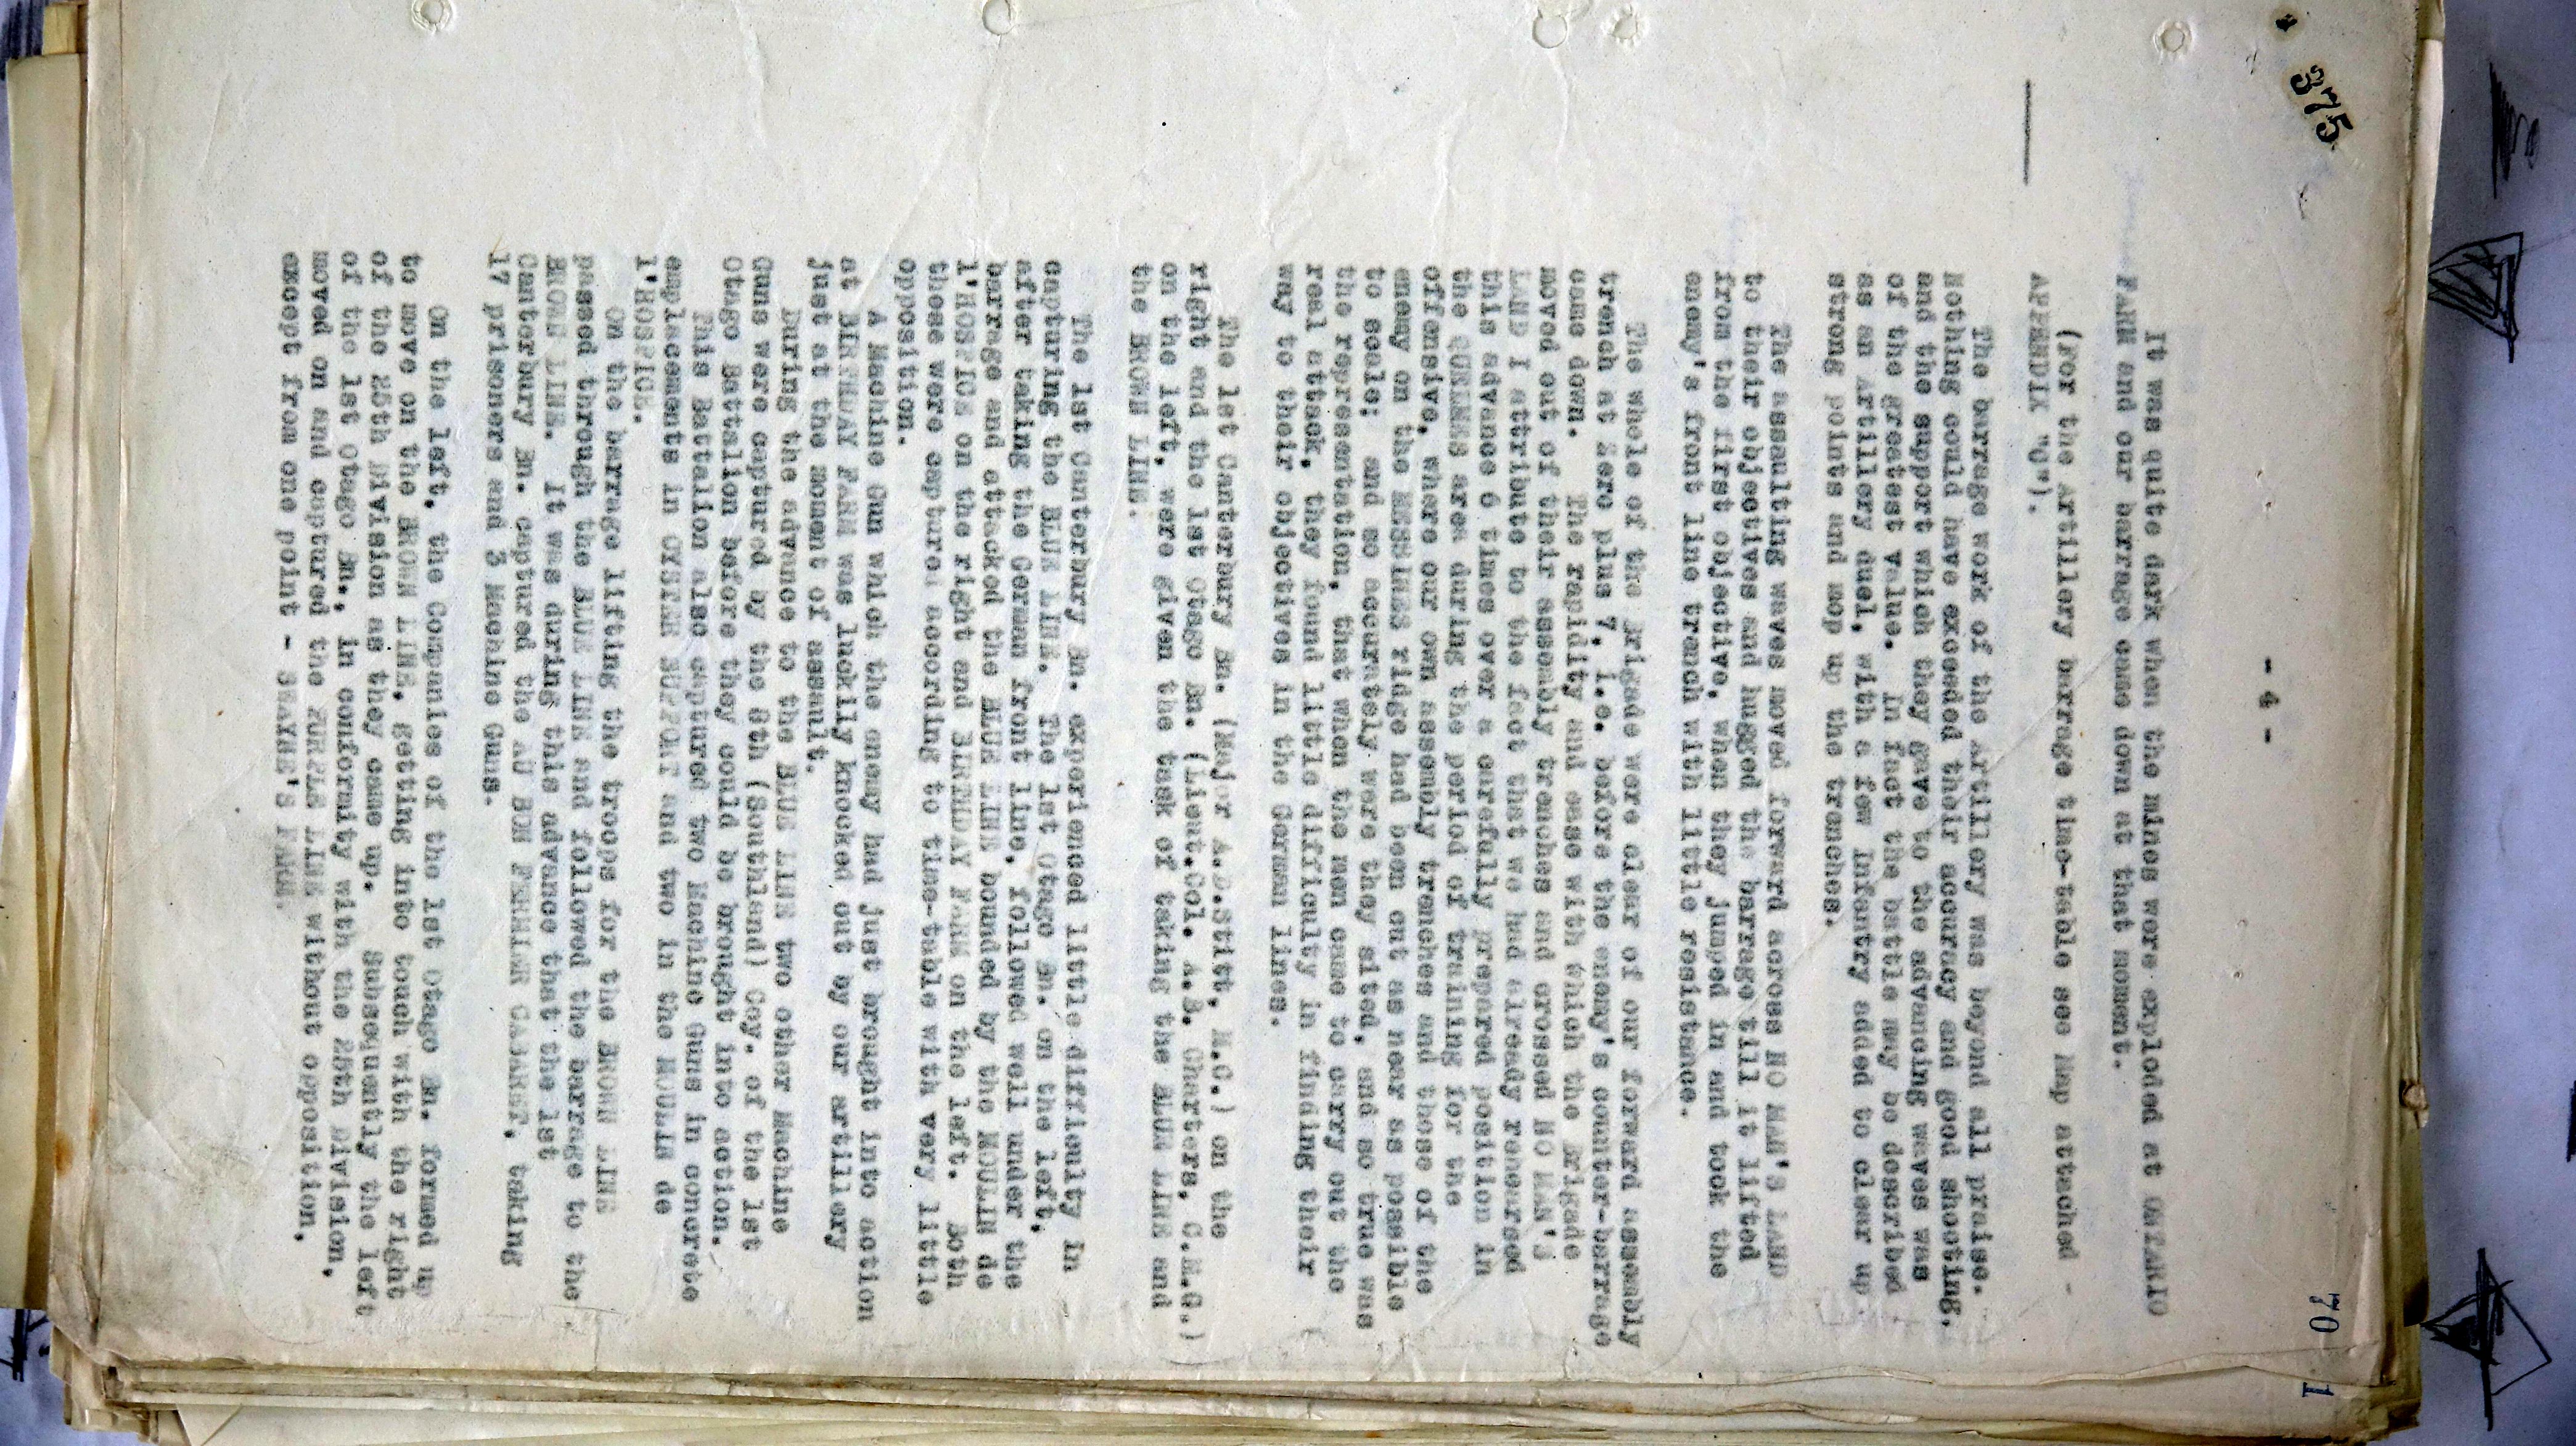 375
70 1
- 4 -
It was quite dark when the mines were exploded at ONTARIO
FARM and our barrage came down at that moment.
(For the Artillery barrage time-table see Map attached -
APPENDIX "C").
The barrage work of the Artillery was beyond all praise.
Nothing could have exceeded their accuracy and good shooting,
and the support which they gave to the advancing waves was
of the greatest value. In fact the battle may be described
as an Artillery duel, with a few Infantry added to clear up
strong points and mop up the trenches.
The assaulting waves moved forward across NO MAN'S LAND
to their objectives and hugged the barrage till it lifted
from the first objective, when they jumped in and took the
enemy's front line trench with little resistance.
The whole of the Brigade were clear of our forward assembly
trench at Zero plus 7, i.e. before the enemy's counter-barrage
came down. The rapidity and ease with which the Brigade
moved out of their assembly trenches and crossed NO MAN'S
LAND I attribute to the fact that we had already rehearsed
this advance 6 times over a carefully prepared position in
the QUELMES area during the period of training for the
offensive, where our own assembly trenches and those of the
enemy on the MESSINES ridge had been cut as near as possible
to scale; and so accurately were they sited, and so true was
the representation, that when the men came to carry out the
real attack, they found little difficulty in finding their
way to their objectives in the German lines.
The 1st Canterbury Bn. (Major A.D.Stitt, M.C.) on the
right and the 1st Otago Bn. (Lieut.Col. A.B. Charters, C.M.G.)
on the left, were given the task of taking the BLUE LINE and
the BROWN LINE.
The 1st Canterbury Bn. experienced little difficulty in
capturing the BLUE LINE. The 1st Otago Bn. on the left,
after taking the German front line, followed well under the
barrage and attacked the BLUE LINE bounded by the MOULIN de
l'HOSPICE on the right and BIRTHDAY FARM on the left. Both
these were captured according to time-table with very little
opposition.
A Machine Gun which the enemy had just brought into action
at BIRTHDAY FARM was luckily knocked out by our artillery
just at the moment of assault.
During the advance to the BLUE LINE two other Machine
Guns were captured by the 8th (Southland) Coy. of the 1st
Otago Battalion before they could be brought into action.
This Battalion also captured two Machine Guns in concrete
emplacements in OYSTER SUPPORT and two in the MOULIN de
l'HOSPICE.
On the barrage lifting the troops for the BROWN LINE
passed through the BLUE LINE and followed the barrage to the
BROWN LINE. It was during this advance that the 1st
Canterbury Bn. captured the AU BON FERMIER CABARET, taking
17 prisoners and 3 Machine Guns.
On the left, the Companies of the 1st Otago Bn. formed up
to move on the BROWN LINE, getting into touch with the right
of the 25th Division as they came up. Subsequently the left
of the 1st Otago Bn., in conformity with the 25th Division,
moved on and captured the PURPLE LINE without opposition,
except from one point - SWAYNE'S FARM.